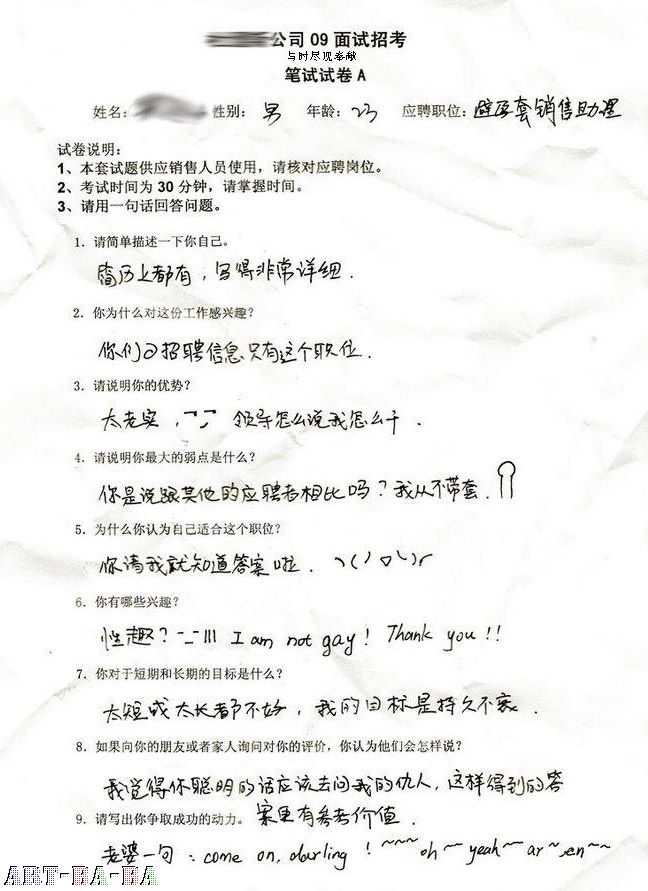 公司 09 面试招考
与时尽观奉献
笔试试卷 A
姓名: 性别: 男 年龄: 23 应聘职位: 避孕套销售助理
试卷说明:
1、本套试题供应销售人员使用，请核对应聘岗位。
2、考试时间为 30 分钟，请掌握时间。
3、请用一句话回答问题。
1. 请简单描述一下你自己。
简历上都有，写得非常详细.
2. 你为什么对这份工作感兴趣?
你们的招聘信息只有这个职位.
3. 请说明你的优势?
太老实, 领导怎么说我怎么干.
4. 请说明你最大的弱点是什么?
你是说跟其他的应聘者相比吗? 我从不带套.
5. 为什么你认为自己适合这个职位?
你请我就知道答案啦.
6. 你有哪些兴趣?
性趣? -_-||| I am not gay! Thank you!!
7. 你对于短期和长期的目标是什么?
太短或太长都不好, 我的目标是持久不衰.
8. 如果向你的朋友或者家人询问对你的评价，你认为他们会怎样说?
我觉得你聪明的话应该去问我的仇人, 这样得到的答
案更有参考价值.
9. 请写出你争取成功的动力。
老婆一句: come on, darling! ~~~ oh~ yeah~ ar~en~~
ART-BA-BA